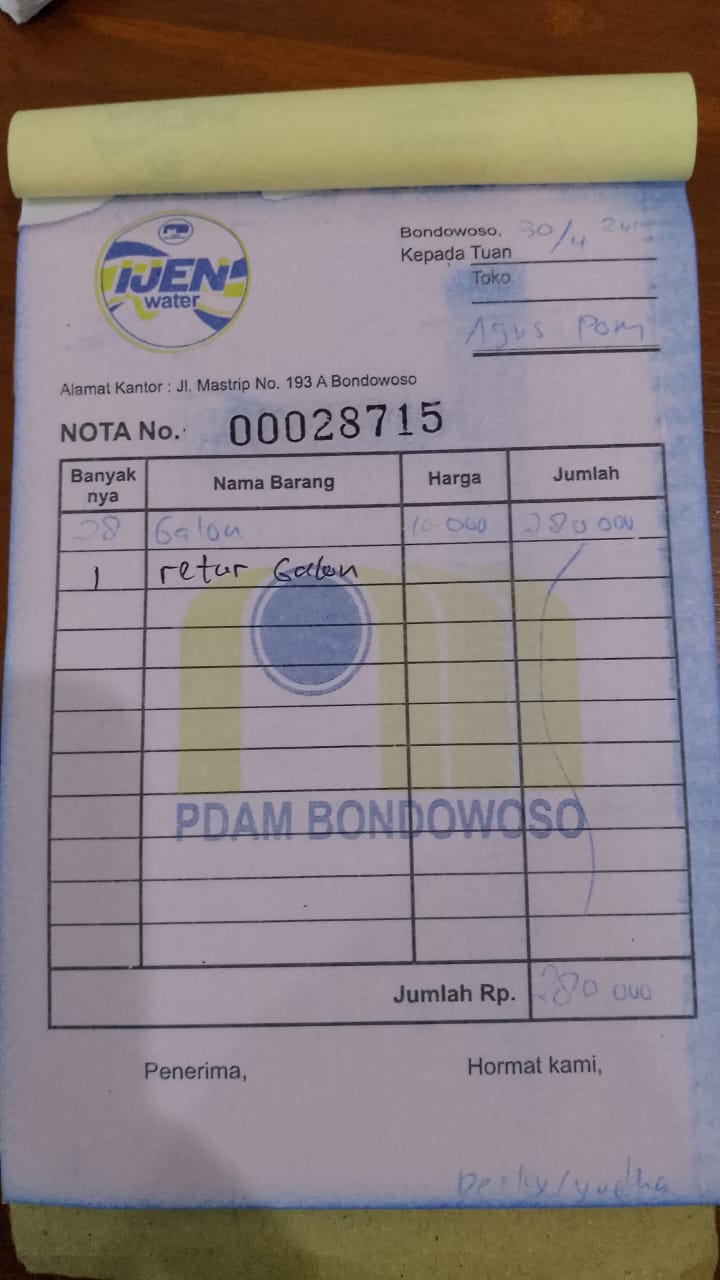 IJEN
water
Bondowoso, 30/4 24
Kepada Tuan
Toko
Agus Pom
Alamat Kantor : Jl. Mastrip No. 193 A Bondowoso
NOTA No. 00028715
Banyak nya Nama Barang Harga Jumlah
28 Galon 10 000 280 000
1 retur Galon
PDAM BONDOWOSO
Jumlah Rp. 280 000
Penerima, Hormat kami,
/yudha